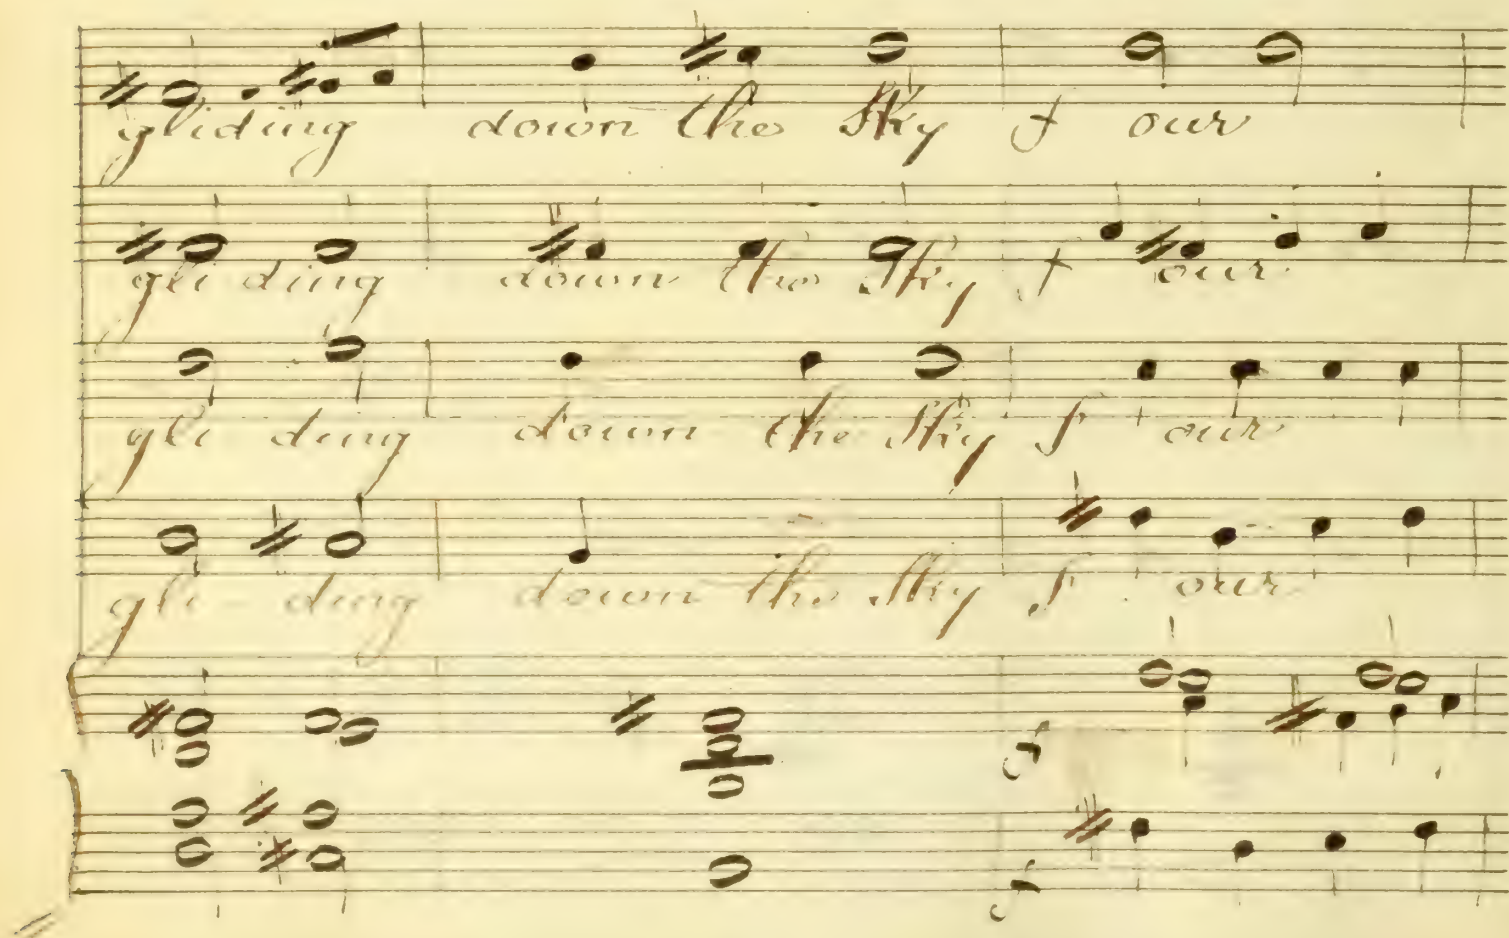 gliding down the Sky f our
gli ding down the Sky f our
gli ding down the Sky f our
gli - ding down the Sky f our
f
f